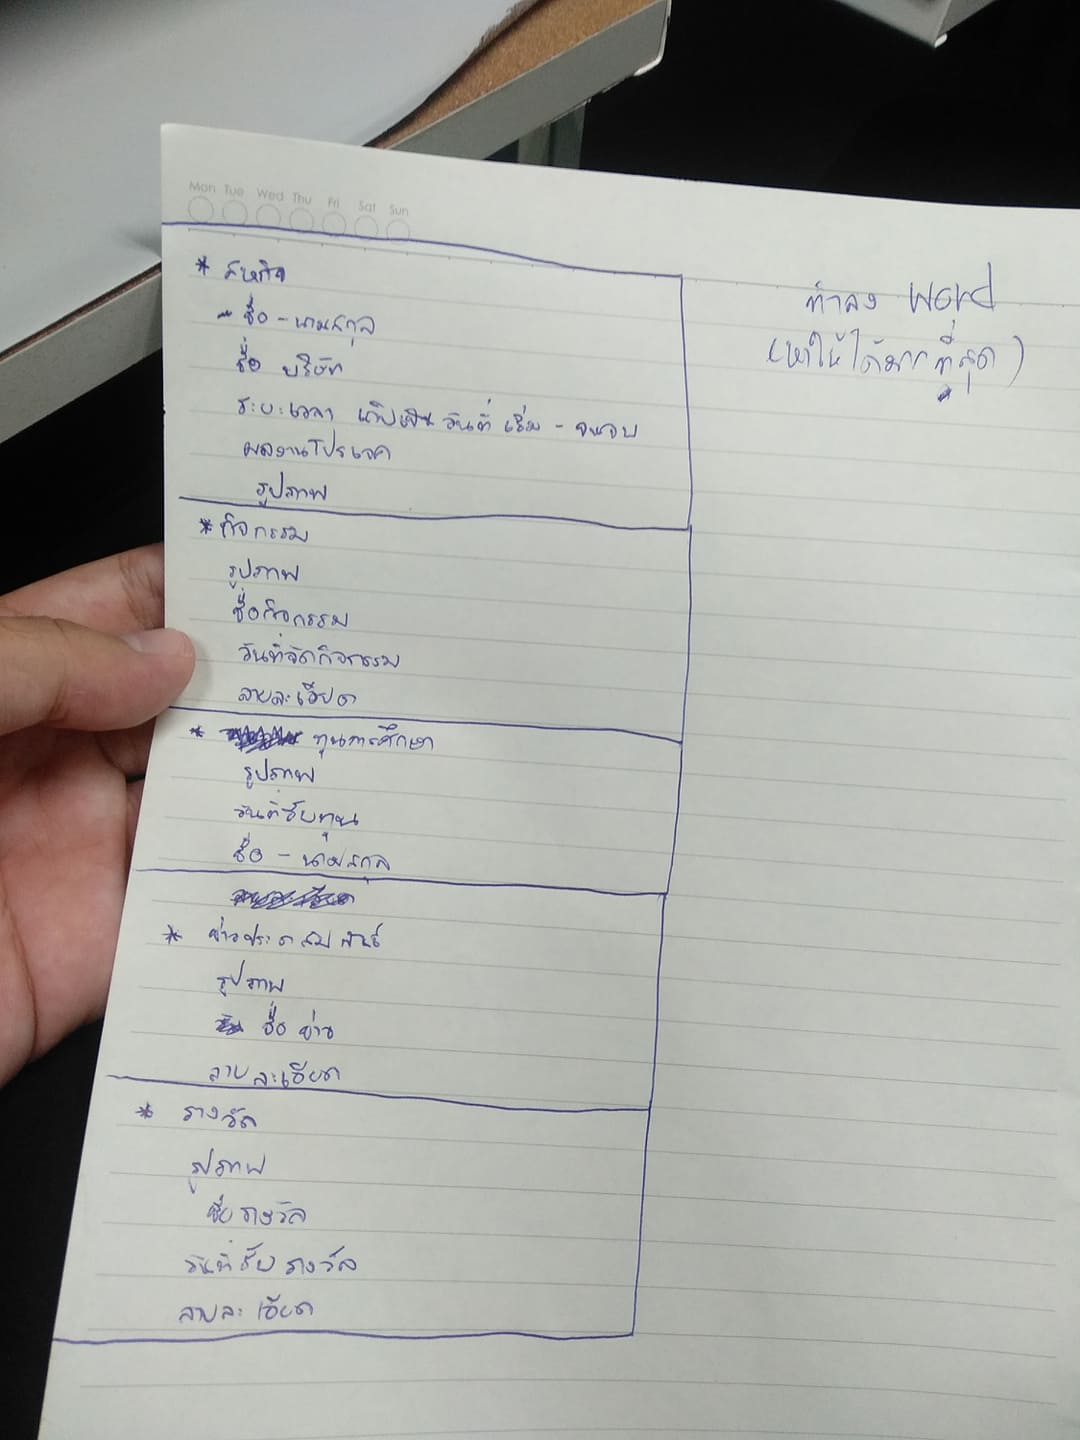 Mon Tue Wed Thu Fri Sat Sun
* สหกิจ
- ชื่อ - นามสกุล
ชื่อ บริษัท
ระยะเวลา เป็น วันที่ เริ่ม - จนจบ
ผลงานโปรเจค
รูปภาพ
* กิจกรรม
รูปภาพ
ชื่อกิจกรรม
วันที่จัดกิจกรรม
ลายละเอียด
* ทุนการศึกษา
รูปภาพ
วันที่รับทุน
ชื่อ - นามสกุล
* ข่าวประชาสัมพันธ์
รูปภาพ
ชื่อ ข่าว
ลายละเอียด
* รางวัล
รูปภาพ
ชื่อรางวัล
วันที่รับ รางวัล
ลายละเอียด
ทำลง Word
(หาให้ได้มากที่สุด)